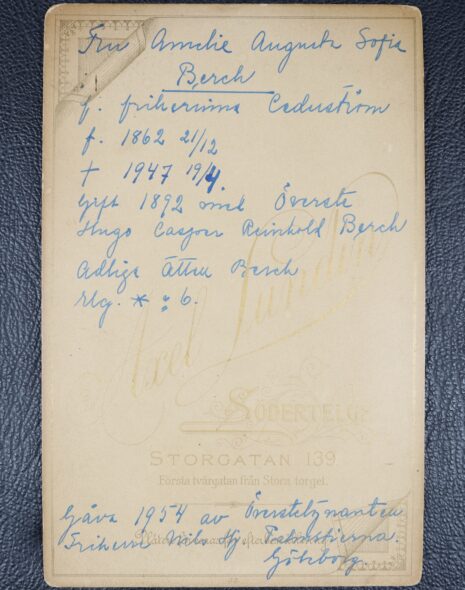 Fru Amelie Augusta Sofia
Berch
f. friherinna Cederström
f. 1862 21/12
† 1947 19/4
Gift 1892 med Överste
Hugo Casper Reinhold Berch
Adliga Ätten Berch
Axel Lundin
SÖDERTELGE
STORGATAN 139
Första tvärgatan från Stora torget.
Gåva 1954 av Överstelöjtnanten
Friherre Nils Hj. Palmstierna
Göteborg.